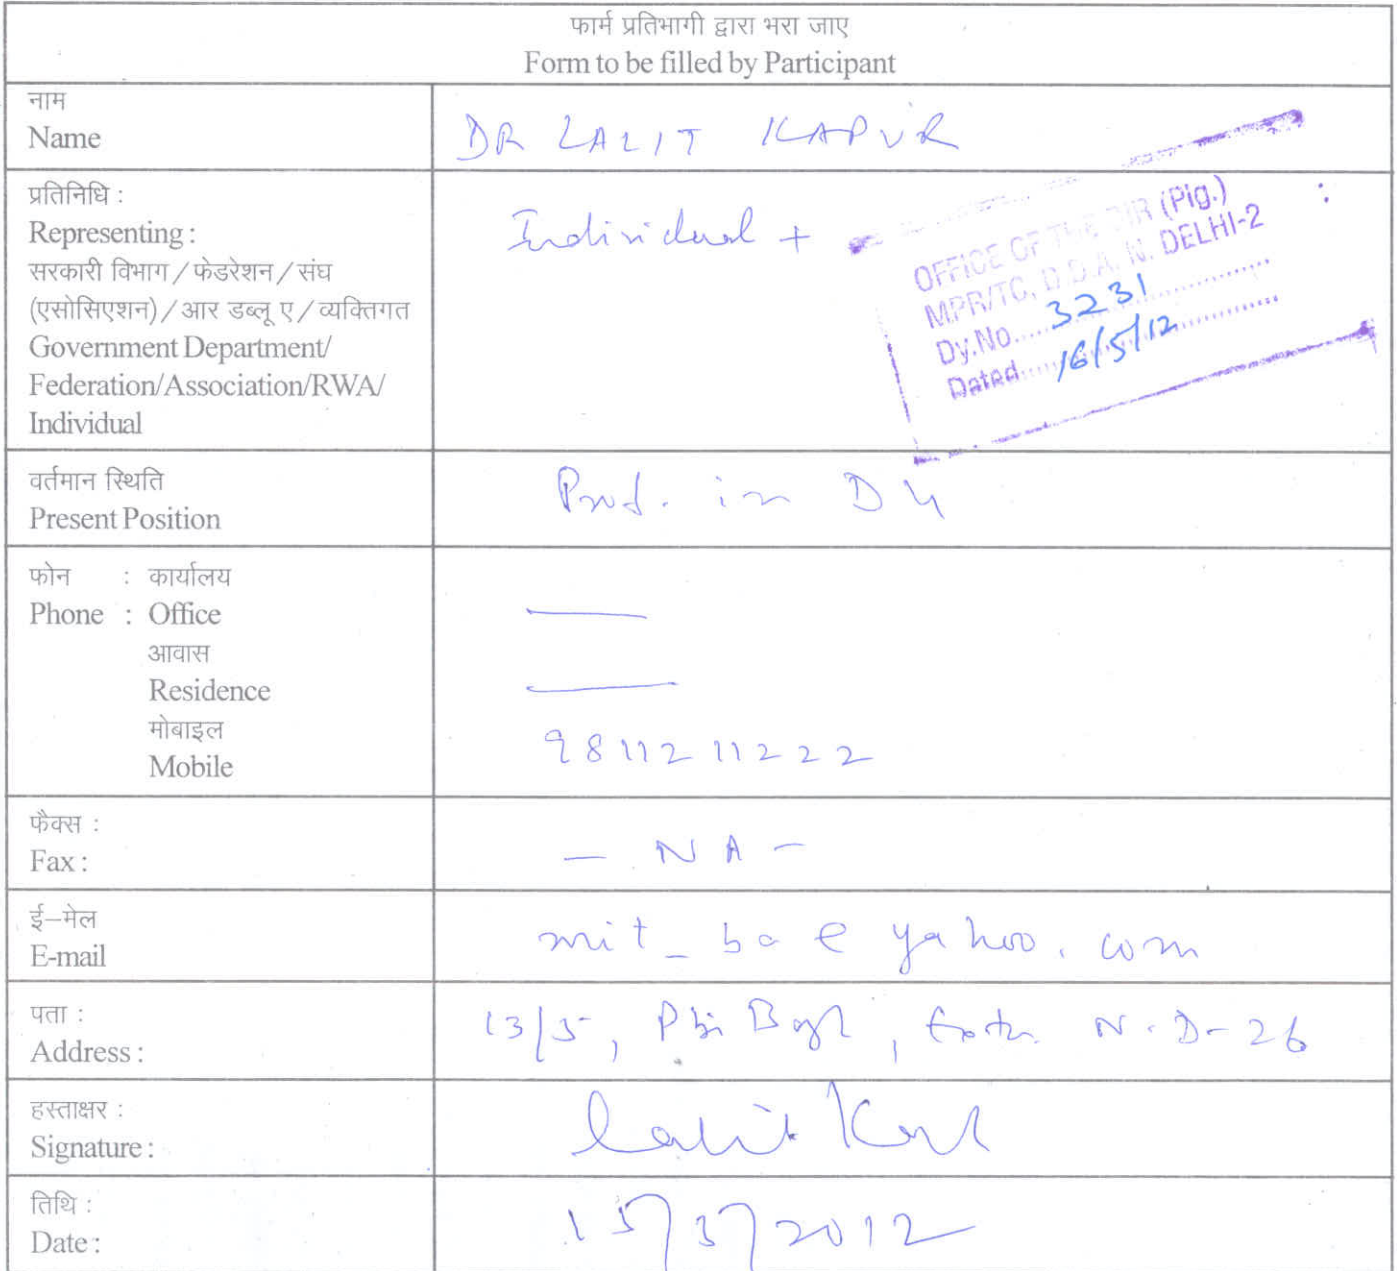 फार्म प्रतिभागी द्वारा भरा जाए
Form to be filled by Participant
नाम
Name
DR LALIT KAPUR
प्रतिनिधि :
Representing :
सरकारी विभाग / फेडरेशन / संघ
(एसोसिएशन) / आर डब्लू ए / व्यक्तिगत
Government Department/
Federation/Association/RWA/
Individual
Individual +
OFFICE OF THE DIR (Plg.)
MPR/TC, D.D.A. N. DELHI-2
Dy.No..... 3231
Dated..... 16/5/12
वर्तमान स्थिति
Present Position
Prof. in DU
फोन : कार्यालय
Phone : Office
आवास
Residence
मोबाइल
Mobile
9811211222
फैक्स :
Fax :
- NA -
ई-मेल
E-mail
mit_ba@yahoo.com
पता :
Address :
13/5, Pbi Bagh, N-D-26
हस्ताक्षर :
Signature :
Lalit
तिथि :
Date :
15/5/2012